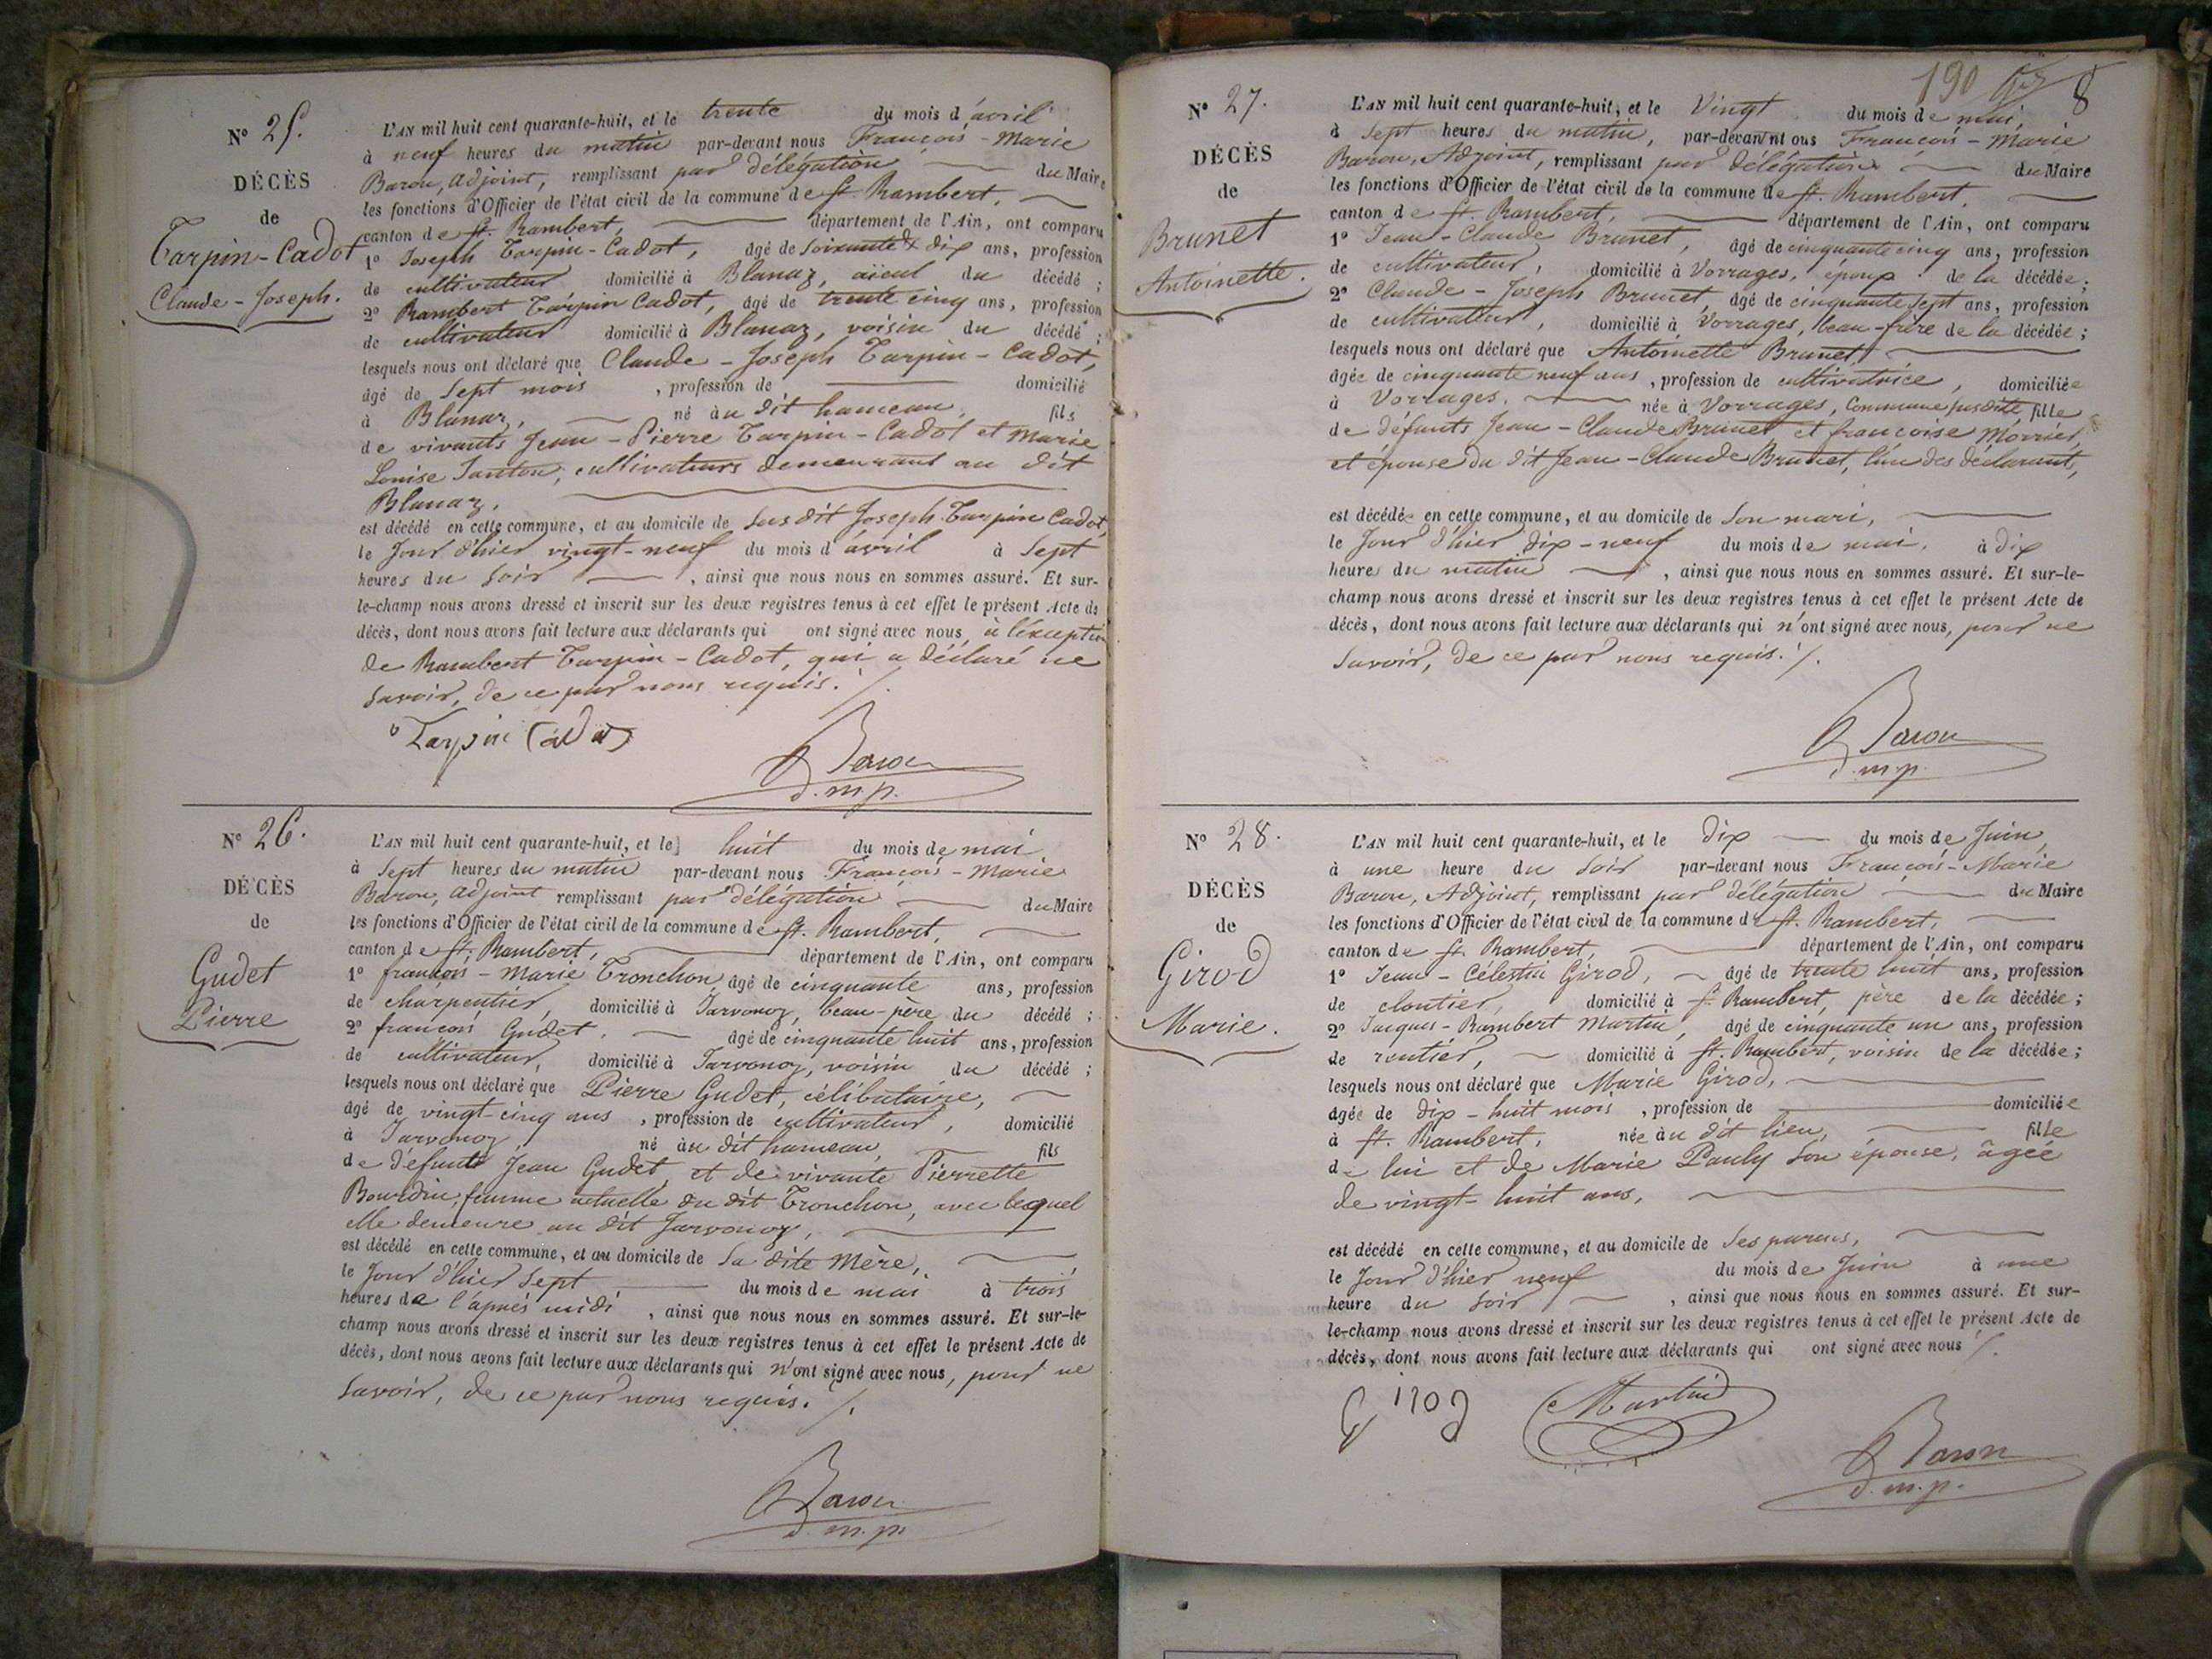 N° 25.
DÉCÈS
de
Tarpin-Cadot
Claude-Joseph.
L'AN mil huit cent quarante-huit, et le trente du mois d'avril
à neuf heures du matin par-devant nous François-Marie
Baron, adjoint, remplissant par délégation du Maire
les fonctions d'Officier de l'état civil de la commune de St. Rambert,
canton de St. Rambert, département de l'Ain, ont comparu
1° Joseph Tarpin-Cadot, âgé de soixante & dix ans, profession
de cultivateur domicilié à Blanaz, aïeul du décédé ;
2° Rambert Tarpin Cadot, âgé de trente cinq ans, profession
de cultivateur domicilié à Blanaz, voisin du décédé ;
lesquels nous ont déclaré que Claude-Joseph Tarpin-Cadot,
âgé de sept mois, profession de domicilié
à Blanaz, né au dit hameau, fils
de vivants Jean-Pierre Tarpin-Cadot et Marie
Louise Janton, cultivateurs demeurant au dit
Blanaz,
est décédé en cette commune, et au domicile de susdit Joseph Tarpin Cadot,
le jour d'hier vingt-neuf du mois d'avril à sept
heures du soir, ainsi que nous nous en sommes assuré. Et sur-
le-champ nous avons dressé et inscrit sur les deux registres tenus à cet effet le présent Acte de
décès, dont nous avons fait lecture aux déclarants qui ont signé avec nous, à l'exception
de Rambert Tarpin-Cadot, qui a déclaré ne
savoir, de ce par nous requis. /.
Tarpin Cadot
Baron
d.m.p.
N° 26.
DÉCÈS
de
Gudet
Pierre
L'AN mil huit cent quarante-huit, et le huit du mois de mai
à sept heures du matin par-devant nous François-Marie
Baron, adjoint remplissant par délégation du Maire
les fonctions d'Officier de l'état civil de la commune de St. Rambert,
canton de St. Rambert, département de l'Ain, ont comparu
1° françois-Marie Tronchon, âgé de cinquante ans, profession
de charpentier, domicilié à Javornoz, beau-père du décédé ;
2° françois Gudet, âgé de cinquante huit ans, profession
de cultivateur, domicilié à Javornoz, voisin du décédé ;
lesquels nous ont déclaré que Pierre Gudet, célibataire,
âgé de vingt-cinq ans, profession de cultivateur, domicilié
à Javornoz, né au dit hameau, fils
de défunt Jean Gudet, et de vivante Pierrette
Bourdin, femme actuelle du dit Tronchon, avec lequel
elle demeure au dit Javornoz,
est décédé en cette commune, et au domicile de sa dite mère,
le jour d'hier sept du mois de mai à trois
heures de l'après midi, ainsi que nous nous en sommes assuré. Et sur-le-
champ nous avons dressé et inscrit sur les deux registres tenus à cet effet le présent Acte de
décès, dont nous avons fait lecture aux déclarants qui n'ont signé avec nous, pour ne
savoir, de ce par nous requis. /.
Baron
d.m.p.
190 8
N° 27.
DÉCÈS
de
Brunet
Antoinette.
L'AN mil huit cent quarante-huit, et le Vingt du mois de mai,
à sept heures du matin, par-devant nt ous François-Marie
Baron, Adjoint, remplissant par délégation du Maire
les fonctions d'Officier de l'état civil de la commune de St. Rambert,
canton de St. Rambert, département de l'Ain, ont comparu
1° Jean-Claude Brunet, âgé de cinquante cinq ans, profession
de cultivateur, domicilié à Vorrages, époux de la décédée ;
2° Claude-Joseph Brunet, âgé de cinquante sept ans, profession
de cultivateur, domicilié à Vorrages, beau-frère de la décédée ;
lesquels nous ont déclaré que Antoinette Brunet,
âgée de cinquante neuf ans, profession de cultivatrice, domiciliée
à Vorrages, née à Vorrages, Commune susdite, fille
de défunts Jean-Claude Brunet et françoise Morrier,
et épouse du dit Jean-Claude Brunet, l'un des déclarant,
est décédée en cette commune, et au domicile de son mari,
le jour d'hier dix-neuf du mois de mai, à dix
heures du matin, ainsi que nous nous en sommes assuré. Et sur-le-
champ nous avons dressé et inscrit sur les deux registres tenus à cet effet le présent Acte de
décès, dont nous avons fait lecture aux déclarants qui n'ont signé avec nous, pour ne
savoir, de ce par nous requis. /.
Baron
d.m.p.
N° 28.
DÉCÈS
de
Girod
Marie.
L'AN mil huit cent quarante-huit, et le dix du mois de Juin,
à une heure du soir par-devant nous François-Marie
Baron, Adjoint, remplissant par délégation du Maire
les fonctions d'Officier de l'état civil de la commune de St. Rambert,
canton de St. Rambert, département de l'Ain, ont comparu
1° Jean-Célestin Girod, âgé de trente huit ans, profession
de cloutier, domicilié à St. Rambert, père de la décédée ;
2° Jacques-Rambert Martin, âgé de cinquante un ans, profession
de rentier, domicilié à St. Rambert, voisin de la décédée ;
lesquels nous ont déclaré que Marie Girod,
âgée de dix-huit mois, profession de domiciliée
à St. Rambert, née au dit lieu, fille
de lui et de Marie Pauly son épouse, âgée
de vingt-huit ans,
est décédé en cette commune, et au domicile de ses parens,
le jour d'hier neuf du mois de Juin à une
heure du soir, ainsi que nous nous en sommes assuré. Et sur-
le-champ nous avons dressé et inscrit sur les deux registres tenus à cet effet le présent Acte de
décès, dont nous avons fait lecture aux déclarants qui ont signé avec nous /.
Girod Martin
Baron
d.m.p.